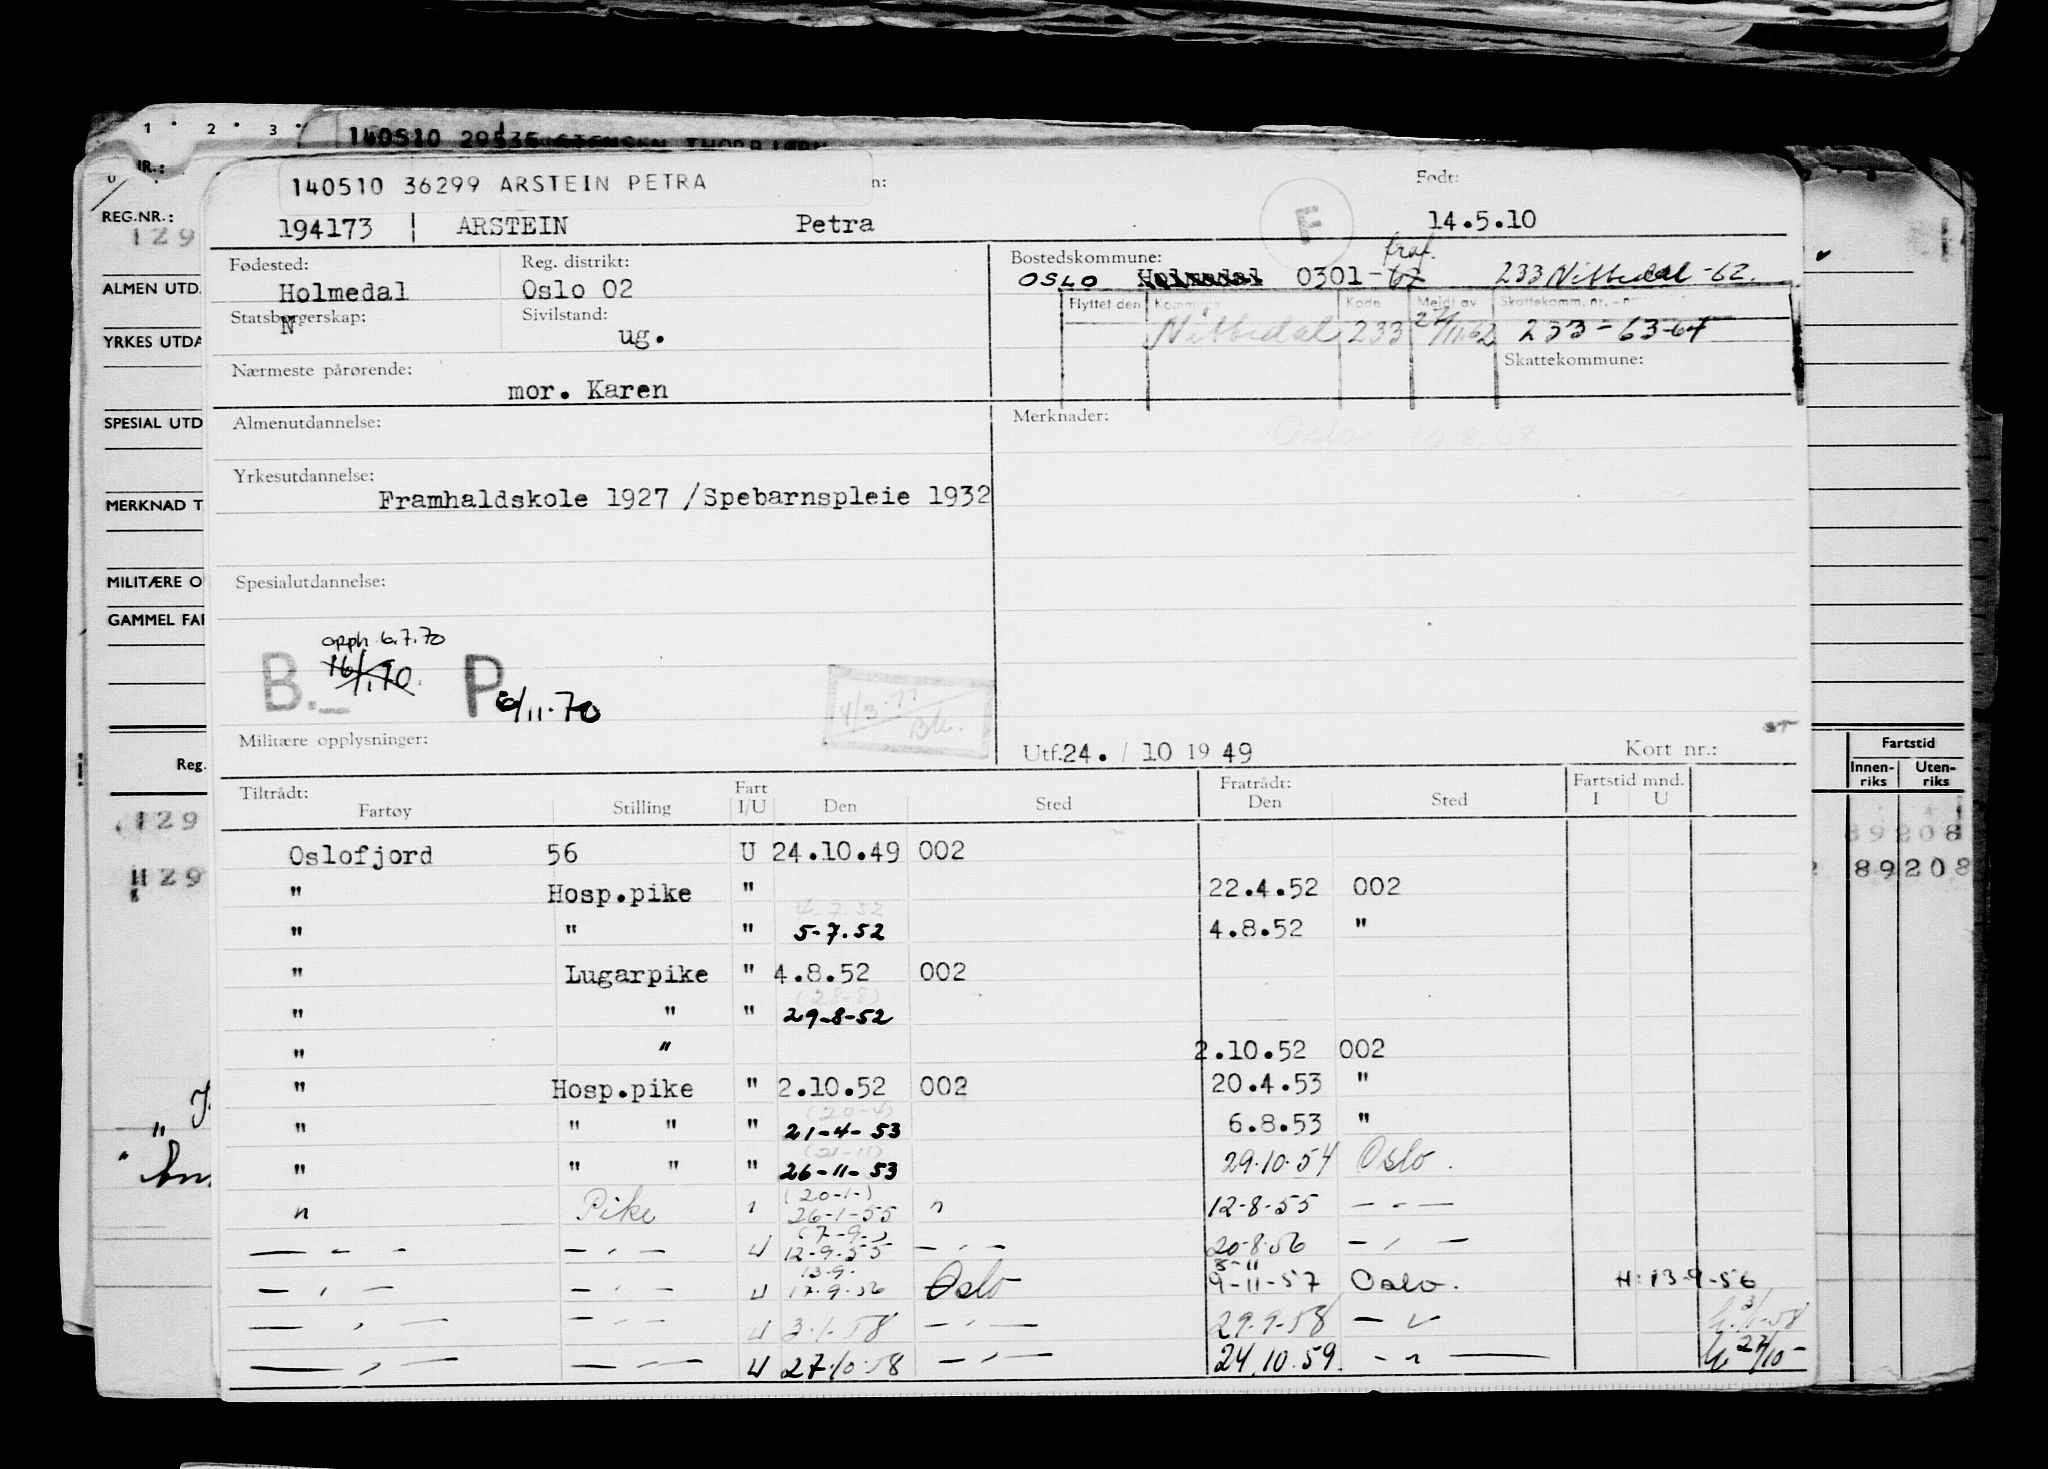 1 2 3
140510 29535 STENSEN THORBJØRN
NR.:
140510 36299 ARSTEIN PETRA n: Født:
REG.NR.: 194173 ARSTEIN Petra F 14.5.10
129
Fødested: Reg. distrikt: Bostedskommune: fraf.
Holmedal Oslo 02 OSLO Holmedal 0301-62 233 Nittedal -62.
ALMEN UTD.
Statsborgerskap: Sivilstand: Flyttet den Kommune Kode Meldt av Skattekomm. nr.
N ug. Nittedal 233 27/11.62 233-63-64
YRKES UTDA
Skattekommune:
Nærmeste pårørende:
mor. Karen
Almenutdannelse: Merknader:
SPESIAL UTD
Oslo 10.8.68.
Yrkesutdannelse:
Framhaldskole 1927 /Spebarnspleie 1932
MERKNAD T
Spesialutdannelse:
MILITÆRE O
GAMMEL FAR
opph 6.7.70
B. 16/1.70. P 6/11.70
4/3-71
Militære opplysninger: Utf. 24. / 10 19 49 Kort nr.:
Reg. Fartstid
Innen-riks Uten-riks
Tiltrådt: Fart Fratrådt: Fartstid mnd.
Fartøy Stilling I/U Den Sted Den Sted I U
129 89208
Oslofjord 56 U 24.10.49 002
129 89208
" Hosp.pike " 22.4.52 002
4-7-52
" " " 5-7.52 4.8.52 "
" Lugarpike " 4.8.52 002
(28-8)
" " " 29-8-52
" " 2.10.52 002
" Hosp.pike " 2.10.52 002 20.4.53 "
(20-4)
" " " " 21-4-53 6.8.53 "
(21-11)
" " " " 26-11-53 29.10.54 Oslo.
(20-1-)
" Pike " 26-1-55 " 12-8-55 — - —
(7-9-)
— - - — , — U 12-9-55 — , — 20-8-56 — , —
13-9- 8-11
— , — — , — U 17.9.56 Oslo 9-11-57 Oslo. H: 13-9-56
— , — — , — U 3.1.58 — , — 29.9-58 — " — h. 3/1-58
— , — — , — U 27.10.58 — , — 24.10.59. - " — h. 27/10-